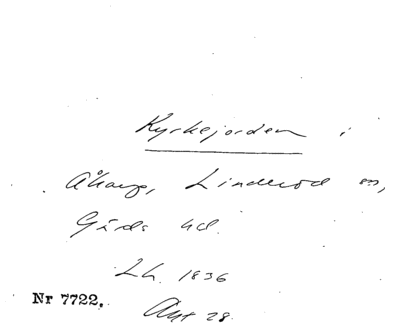 Kyrkejorden i
Åkarp, Linderöd sn,
Gärds hd.
Lh. 1836
Nr 7722.
Akt 28.